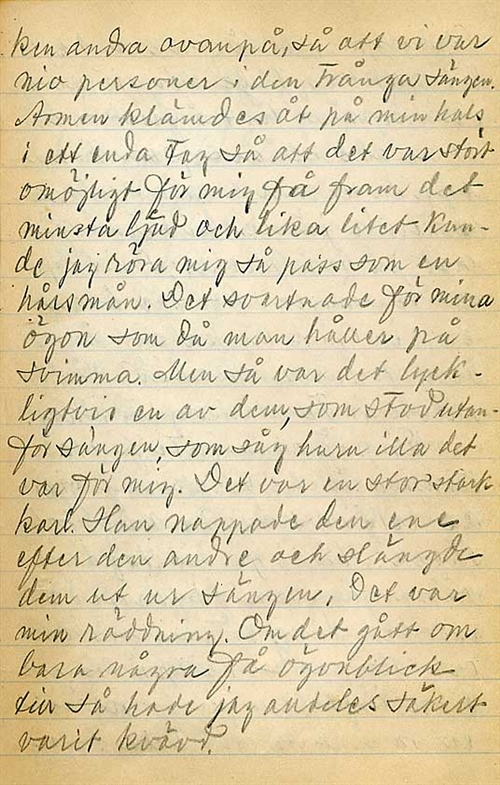 ken andra ovanpå, så att vi var
nio personer i den trånga sängen.
Armen klämdes åt på min hals
i ett enda tag så att det var stört
omöjligt för mig få fram det
minsta ljud och lika litet kun-
de jag röra mig så pass som en
hårsmån. Det svartnade för mina
ögon som då man håller på
svimma. Men så var det lyck-
ligtvis en av dem, som stod utan-
för sängen, som såg huru illa det
var för mig. Det var en stor stark
karl. Han nappade den ene
efter den andre och slängde
dem ut ur sängen. Det var
min räddning. Om det gått om
bara några få ögonblick
till så hade jag alldeles säkert
varit kvävd.